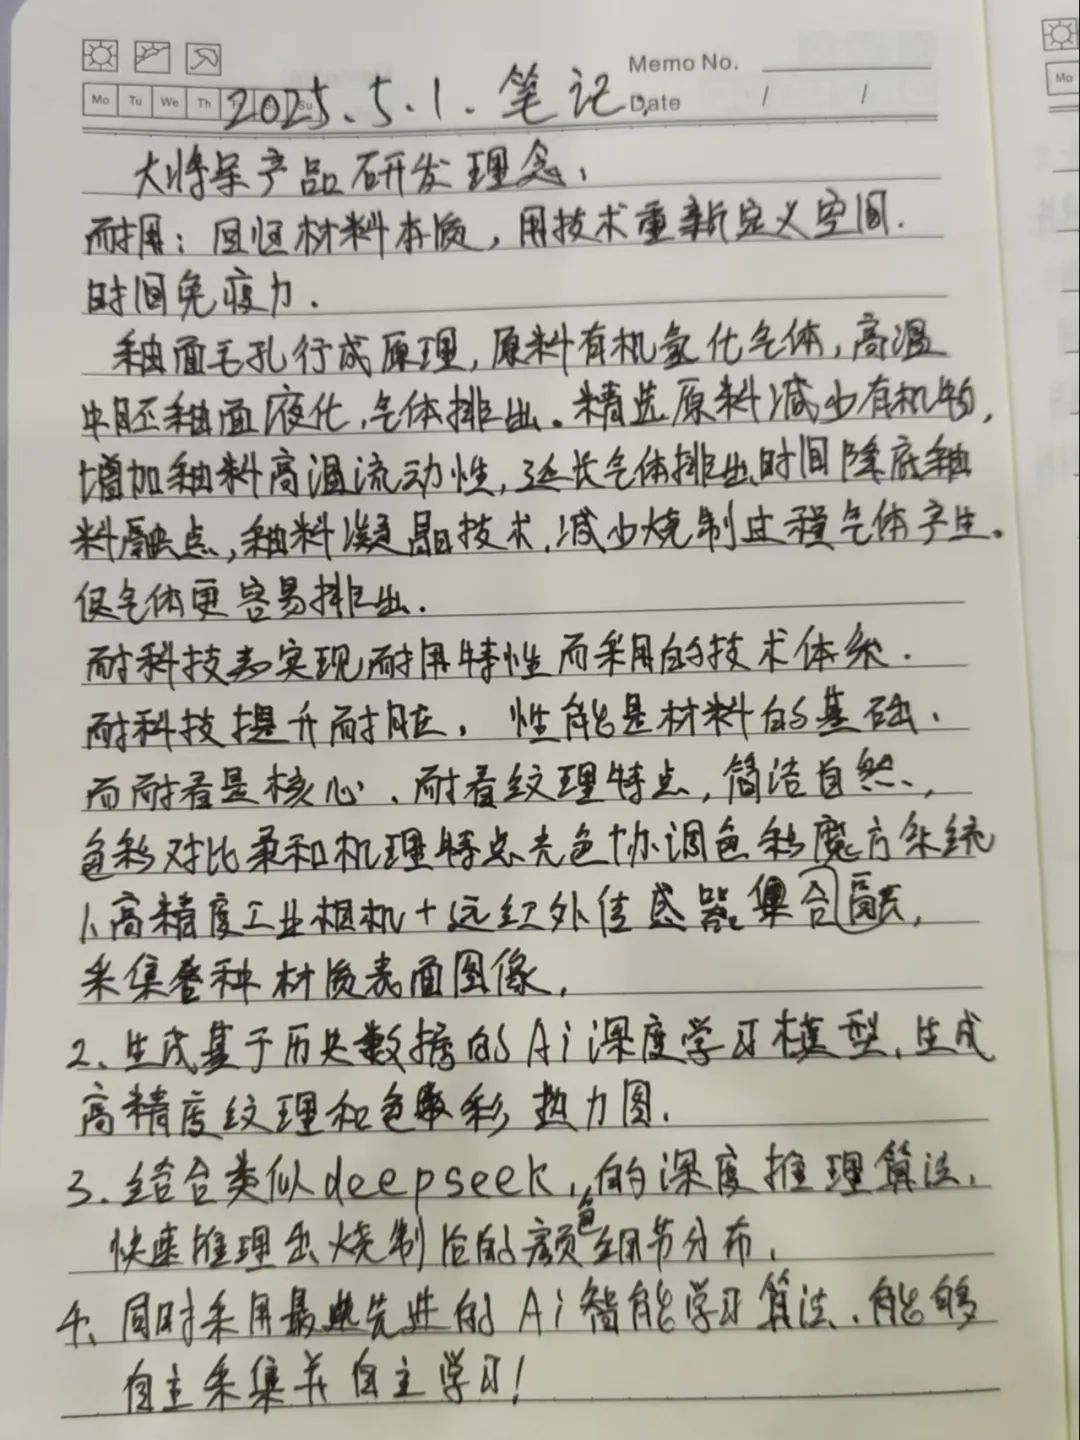 Memo No.
Mo Tu We Th Su Date / /
2025.5.1.笔记.
大将军产品研发理念:
耐用:回归材料本质,用技术重新定义空间.
时间免疫力.
釉面毛孔行成原理,原料有机氢化气体,高温
中胚釉面液化,气体排出。精选原料减少有机物,
增加釉料高温流动性,延长气体排出时间降底釉
料融点,釉料凝晶技术.减少烧制过程气体产生。
促气体更容易排出.
耐科技为实现耐用特性而采用的技术体系.
耐科技提升耐脏。性能是材料的基础.
而耐看是核心、耐看纹理特点,简洁自然、,
色彩对比柔和机理特点光色协调色彩魔方系统
1.高精度工业相机+远红外传感器集合融,
采集各种材质表面图像.
2.生成基于历史数据的Ai深度学习模型.生成
高精度纹理和色彩热力图.
3.结合类似deepseek,的深度推理算法.
快速推理出烧制后的颜色细节分布.
4.同时采用最先进的Ai智能学习算法.能够
自主采集并自主学习!
Mo